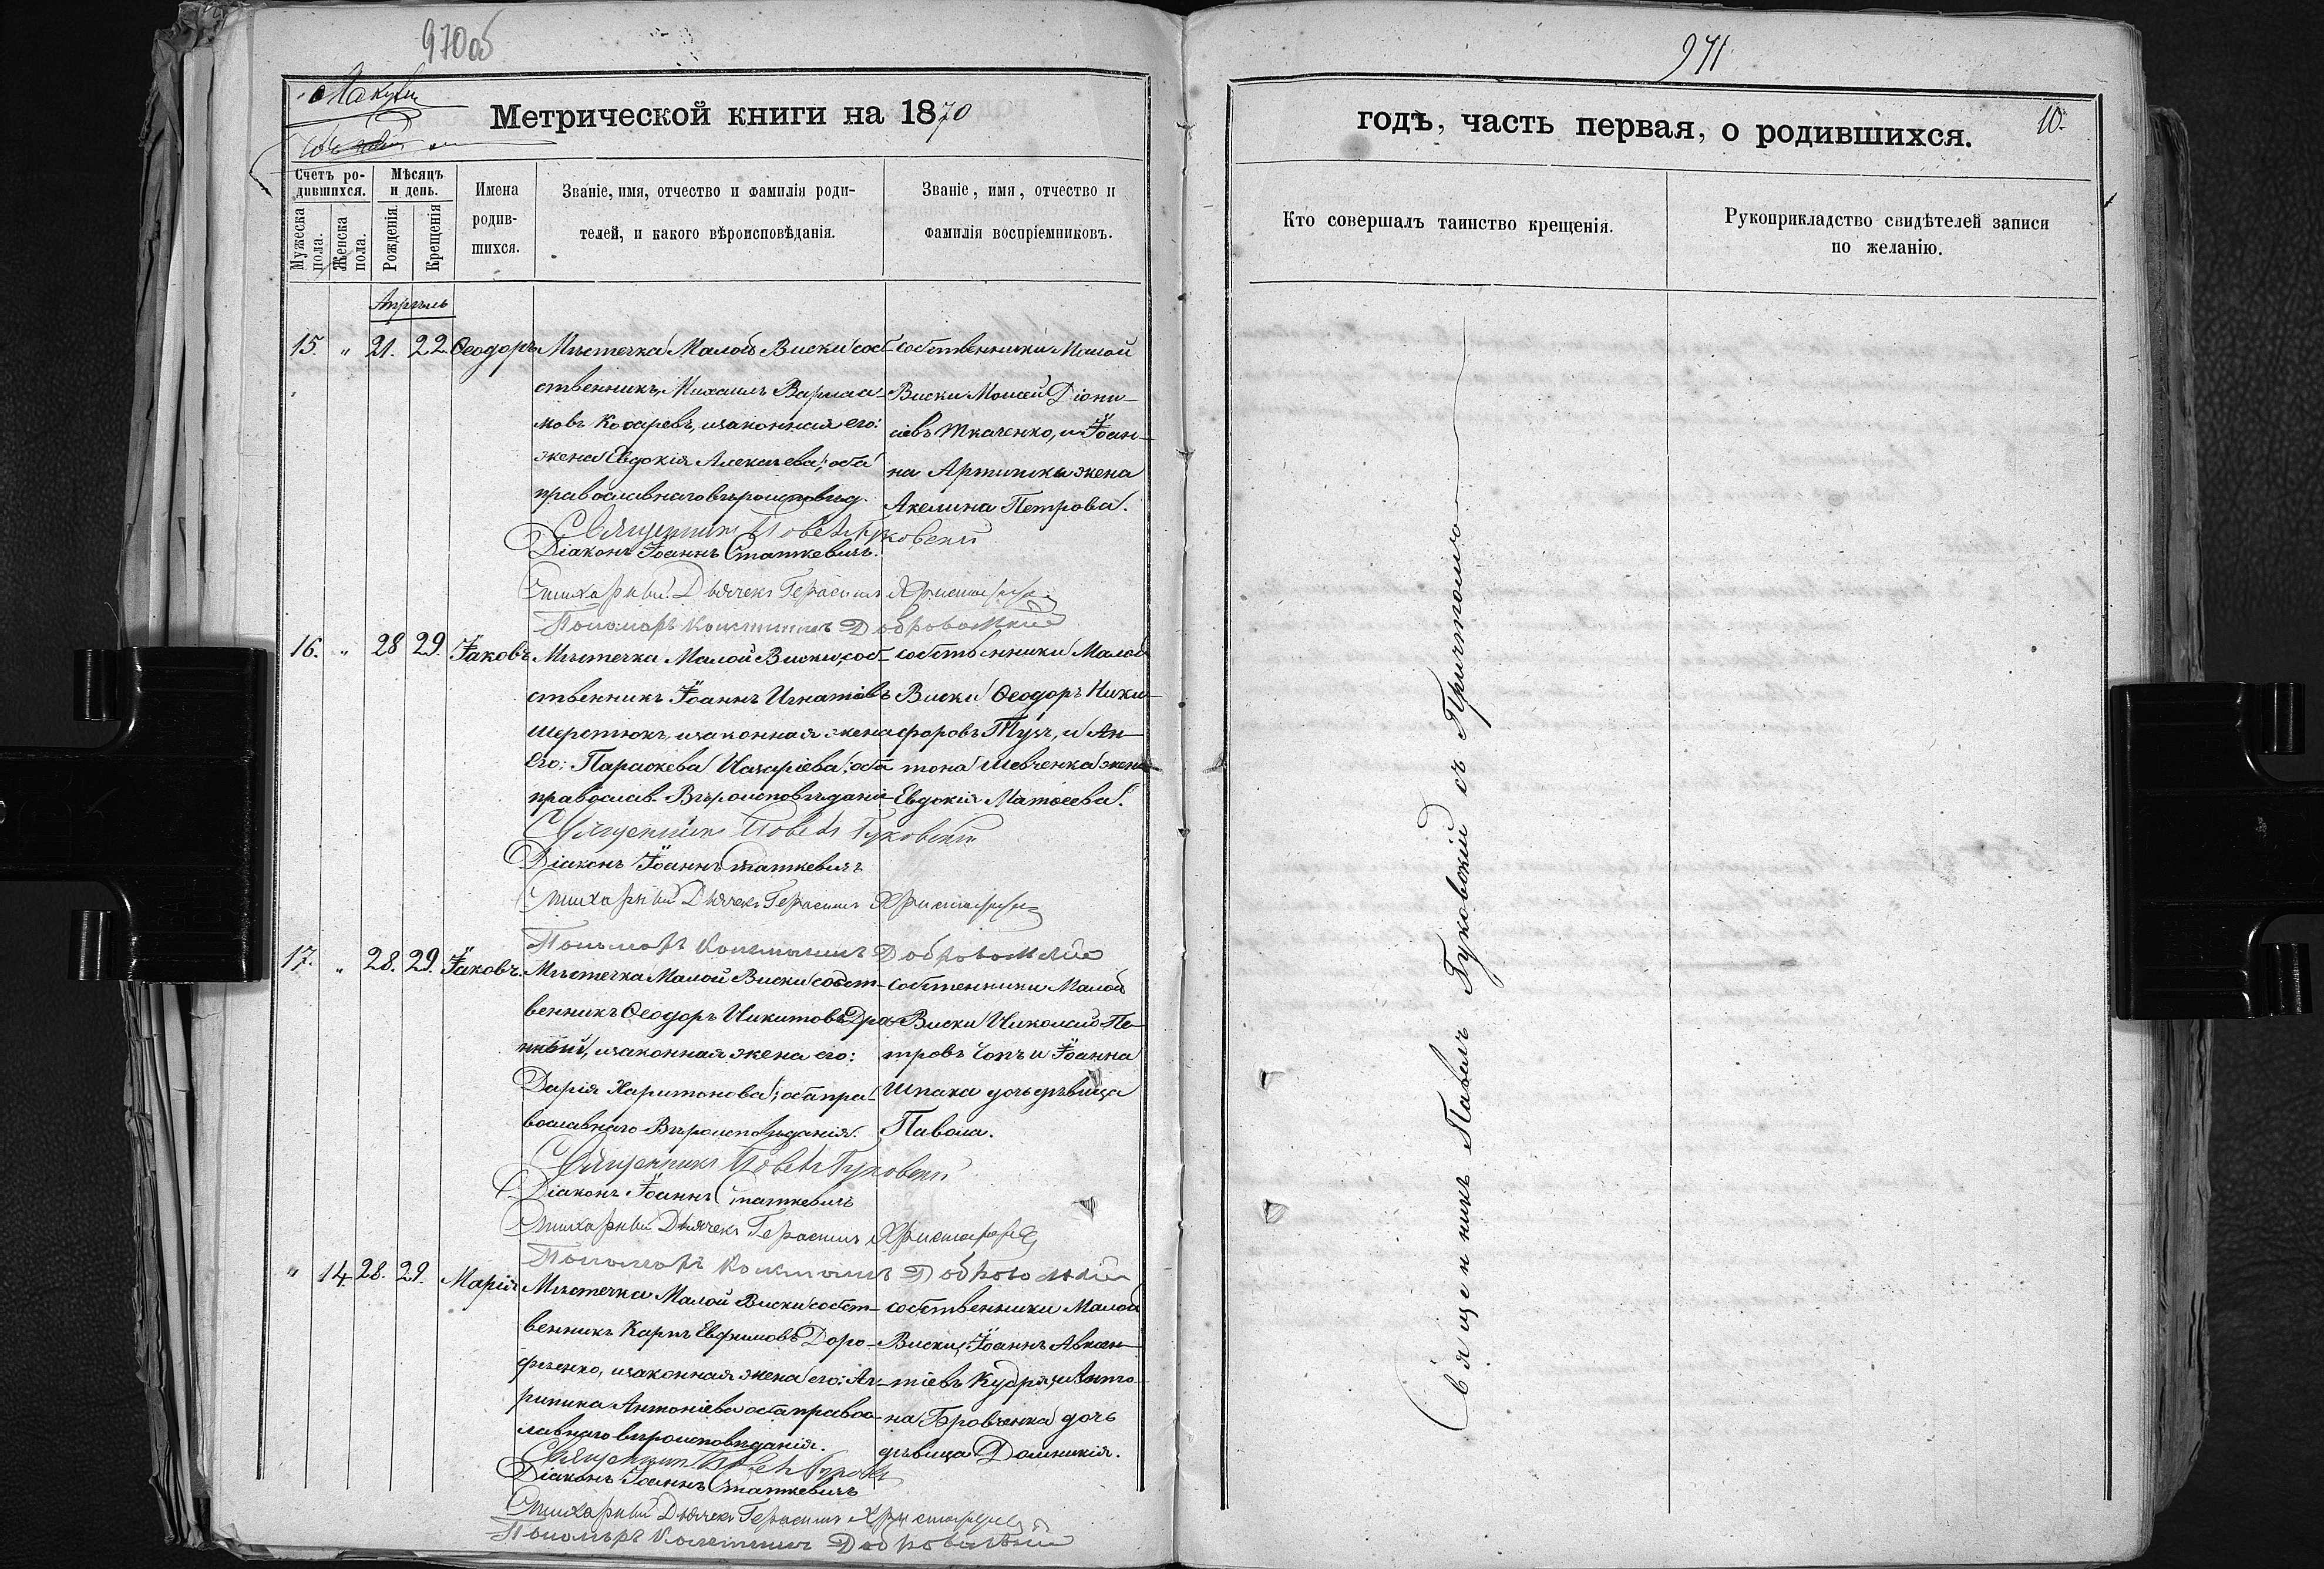 970об
Метрической книги на 1870
Счетъ ро-
дившихся.
Мѣсяцъ
и день.
Мужеска
пола.
Женска
пола.
Рожденія.
Крещенія
Имена
родив-
шихся.
Званіе, имя, отчество и фамилія роди-
телей, и какого вѣроисповѣданія.
Званіе, имя, отчество и
фамилія воспріемниковъ.
Апрѣль
15. " 21. 22. Ѳеодоръ Мѣстечка Малой Виски соб-
ственникъ, Михаилъ Варлаа-
мовъ и законная его:
жена Евдокія Алексѣева; оба
православнаго вѣроисповѣд.
собственники Малой
Виски Моисей Діони-
сіевъ Ткаченко, и Іоан-
на жена
Акелина Петрова.
Священник Гуковский
Діаконъ Іоаннъ Статкевичъ.
Стихарный Дьячекъ Герасимъ
Пономарь
16. " 28 29. Іаковъ Мѣстечка Малой Виски, соб-
ственникъ Іоаннъ Игнатовъ
Шереметъ, и законная жена
его: Параскева Назаріева; оба
православ. Вѣроисповѣдані
собственники Малой
Виски Ѳеодоръ Ники-
форовъ и Ан-
тона Шевченка жена
Евдокія Матѳеева.
Священник Гуковский
Діаконъ Іоаннъ Статкевичъ
Стихарный Дьячекъ Герасимъ
Пономарь
17. " 28. 29. Іаковъ. Мѣстечка Малой Виски собст-
венникъ Ѳеодоръ Никитовъ Дра-
ный, и законная жена его:
Дарія Харитонова; оба пра-
вославнаго Вѣроисповѣданія.
собственники Малой
Виски Николай Пе-
тровъ Чопъ и Іоанна
Шпака дочь дѣвица
Павола.
Священникъ Гуковский
Діаконъ Іоаннъ Статкевичъ
Стихарный Дьячекъ Герасимъ
Пономарь
" 14. 28. 29. Марія Мѣстечка Малой Виски собст-
венникъ Карпъ Евфимовъ Доро-
феенко, и законная жена его: Аг-
рипина Антоніева оба правос-
лавнаго вѣроисповѣданія.
собственники Малой
Виски, Іоаннъ Авксен-
тіевъ Кудря, и Анто-
на Бровченка дочь
дѣвица Домникія.
Діаконъ Іоаннъ Статкевичъ
Стихарный Дьячекъ Герасимъ
Пономарь
971
годѣ, часть первая, о родившихся.
10.
Кто совершалъ таинство крещенія.
Рукоприкладство свидѣтелей записи
по желанію.
Священникъ Павелъ Гуковскій съ Причтомъ